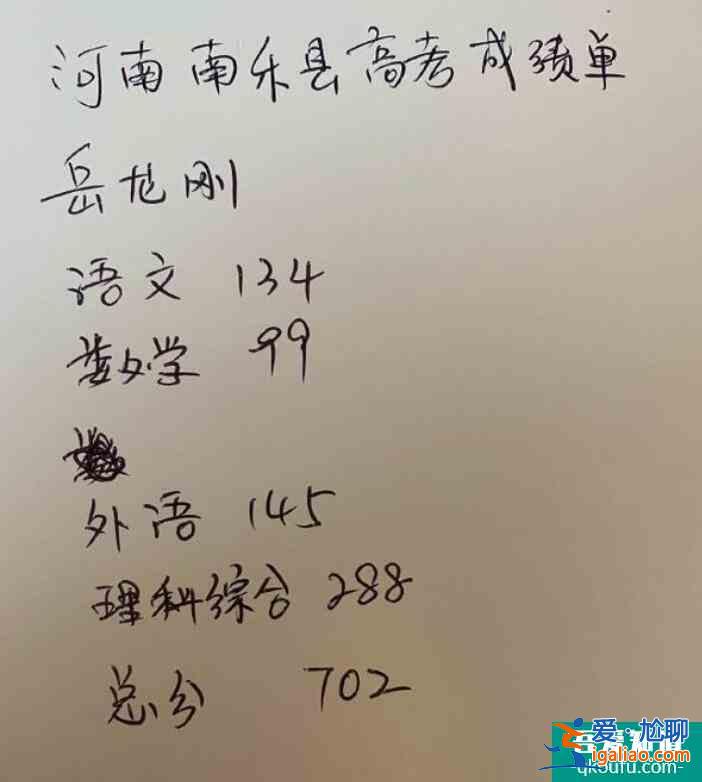 河南南乐县高考成绩单
岳龙刚
语文 134
数学 99
外语 145
理科综合 288
总分 702
爱尬聊
igaliao.com